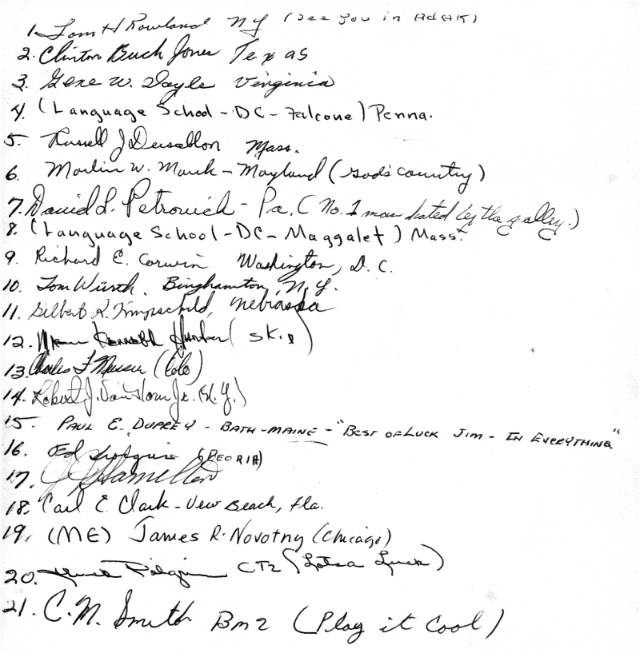 1. Tom H Rowland NY (See you in Adak)
2. Clinton Buck Jones Texas
3. Gene W. Doyle Virginia
4. (Language School - DC - Falcone) Penna.
5. Russell J Mass.
6. Marlin W. Mauk - Mayland (God's country)
7. David L. Petrovich - Pa. (No. 1 man hated by the galley.)
8. (Language School - DC - Maggalet) Mass.
9. Richard E. Corwin Washington, D.C.
10. Tom Wirth. Binghamton, N.Y.
11. Gilbert K. Nebraska
12. Kenneth Hunter (Skip)
13. Charles F (Colo)
14. Robert J. Van Horn Jr. (N.Y.)
15. PAUL E. DUPREY - BATH-MAINE - "BEST OF LUCK JIM - IN EVERYTHING"
16. Ed (PEORIA)
17. Hamilton
18. Carl E. Clark - Vew Beach, Fla.
19. (ME) James R. Novotny (Chicago)
20. Pilgrim CT2 (Lotsa Luck)
21. C.M. Smith BM2 (Play it Cool)